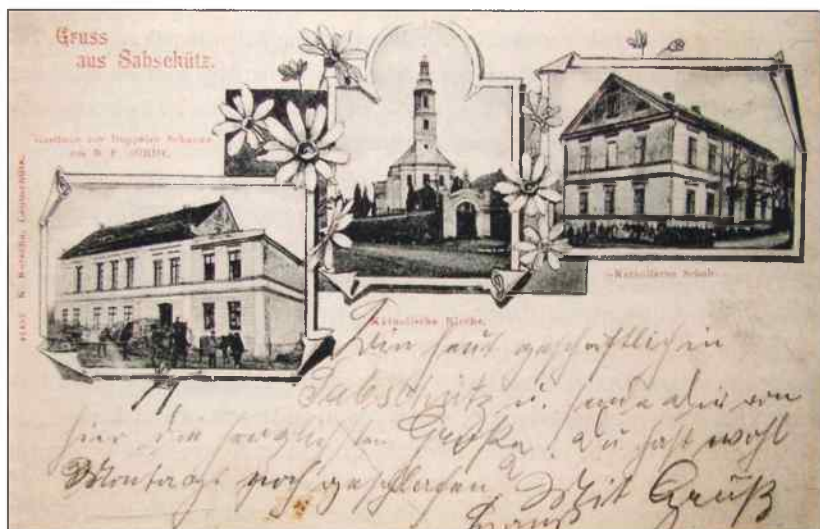 Gruss
aus Sabschütz.
Gasthaus zur
Katholische Kirche.
Katholische Schule
Bin heut geschäftlich in
Sabschütz u. sende dir von
hier die herzlichsten Grüße. Du hast wohl
Montag noch geschlafen? Mit Gruß